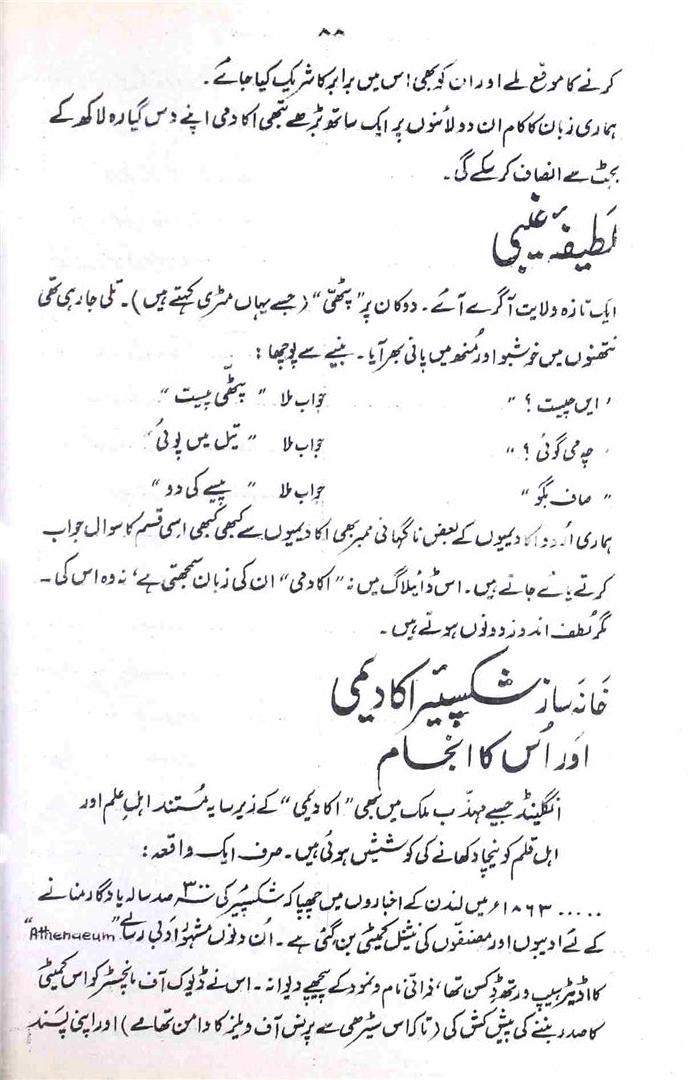 ۸۸
کرنے کا موقع ملے اور ان کو بھی اس میں برابر کا شریک کیا جائے۔
ہماری زبان کا کام ان دو لائنوں پر ایک ساتھ بڑھے تبھی اکادمی اپنے دس گیارہ لاکھ کے
بجٹ سے انصاف کر سکے گی۔
لطیفۂ غیبی
ایک تازہ ولایت آگرے آئے۔ دوکان پر "پٹھی" (جسے یہاں مٹری کہتے ہیں)۔ تلی جا رہی تھی
نتھنوں میں خوشبو اور مُنھ میں پانی بھر آیا۔ بنیے سے پوچھا:
"ایں چیست ؟" جواب ملا "پٹھی پیست"
"چہ می گوئی ؟" جواب ملا "تیل میں پوئی"
"صاف بگو" جواب ملا "پیسے کی دو"
ہماری اُردو اکادیمیوں کے بعض ناگہانی ممبر بھی اکادیمیوں سے کبھی کبھی اسی قسم کا سوال جواب
کرتے پائے جاتے ہیں۔ اس ڈائیلاگ میں نہ "اکادمی" ان کی زبان سمجھتی ہے، نہ وہ اس کی۔
مگر لُطف اندوز دونوں ہوتے ہیں۔
خانہ ساز شکسپیئر اکادیمی
اور اُس کا انجام
انگلینڈ جیسے مہذب ملک میں بھی "اکادیمی" کے زیر سایہ مُستند اہلِ علم اور
اہل قلم کو نیچا دکھانے کی کوششیں ہوئی ہیں۔ صرف ایک واقعہ:
..... ۱۸۶۳ء میں لندن کے اخباروں میں چھپا کہ شکسپیئر کی ۳۰۰ سہ صد سالہ یادگار منانے
کے لئے ادیبوں اور مصنفوں کی نیشنل کمیٹی بن گئی ہے۔ اُن دنوں مشہور ادبی رسالے "Athenaeum"
کا اڈیٹر ہیپ ورتھ ڈکسن تھا، ذاتی نام و نمود کے پیچھے دیوانہ۔ اس نے ڈیوک آف مانچسٹر کو اس کمیٹی
کا صدر بننے کی پیش کش کی (تاکہ اس سیڑھی سے پرنس آف ویلز کا دامن تھامے) اور اپنی پسند